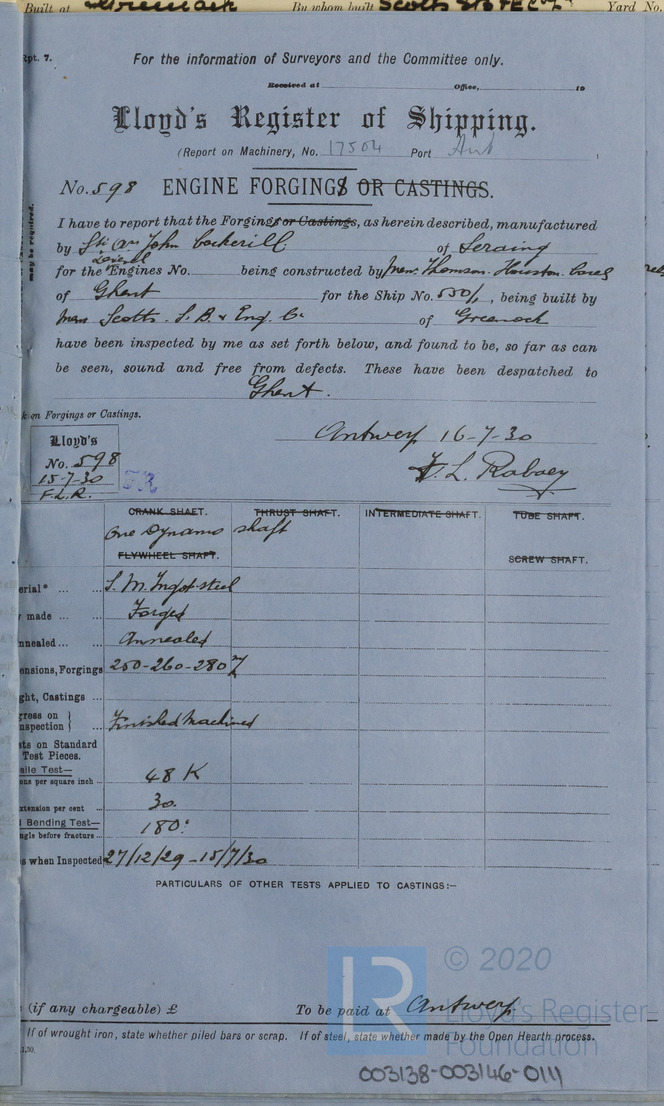 Built at Greenock By whom built Scotts' S.B & E C° L^d Yard No.
Rpt. 7. For the information of Surveyors and the Committee only.
Received at Office, 19
Lloyd's Register of Shipping.
(Report on Machinery, No. 17504 Port Ant )
No. 598 ENGINE FORGINGS OR CASTINGS.
may be required.
I have to report that the Forgings or Castings, as herein described, manufactured
by Sté An John Cockerill of Seraing
for the Diesel Engines No. being constructed by Mess. Thomson. Houston. Carels
of Ghent for the Ship No. 550/6, being built by
Mess Scotts. S. B. & Eng. C° of Greenock
have been inspected by me as set forth below, and found to be, so far as can
be seen, sound and free from defects. These have been despatched to
Ghent.
on Forgings or Castings.
Antwerp 16-7-30
F. L. Rabaey
Lloyd's
No. 598
15-7-30
F.L.R.
CRANK SHAFT. THRUST SHAFT. INTERMEDIATE SHAFT. TUBE SHAFT.
One Dynamo shaft
FLYWHEEL SHAFT. SCREW SHAFT.
erial* ... S. M. Ingot steel
made ... Forged
nnealed ... Annealed
ensions, Forgings 250-260-280 m/m
ght, Castings ...
gress on
nspection Finished Machined
sts on Standard
Test Pieces.
sile Test—
ons per square inch ... 48 K
xtension per cent ... 30.
Bending Test—
ngle before fracture ... 180°
s when Inspected 27/12/29 - 15/7/30
PARTICULARS OF OTHER TESTS APPLIED TO CASTINGS:—
(if any chargeable) £ To be paid at Antwerp
If of wrought iron, state whether piled bars or scrap. If of steel, state whether made by the Open Hearth process.
LR © 2020
Lloyd's Register
Foundation
003138-003146-0111